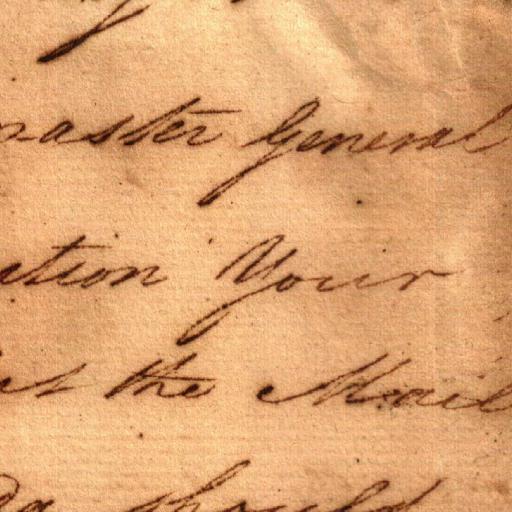 master General
ation Your
the Mail
should